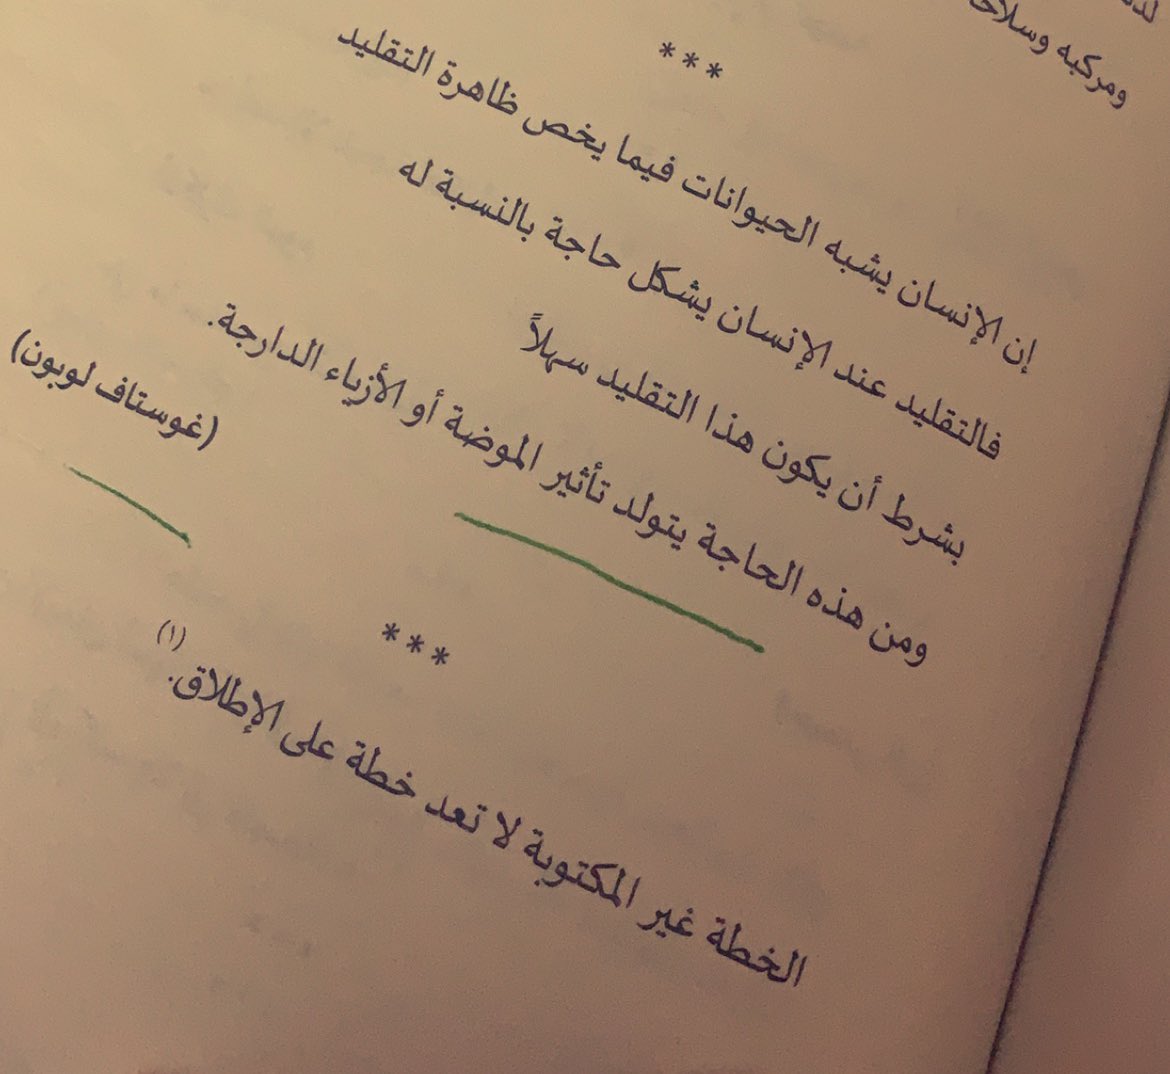 ومركبه
***
إن الإنسان يشبه الحيوانات فيما يخص ظاهرة التقليد
فالتقليد عند الإنسان يشكل حاجة بالنسبة له
بشرط أن يكون هذا التقليد سهلاً
ومن هذه الحاجة يتولد تأثير الموضة أو الأزياء الدارجة.
(غوستاف لوبون)
***
الخطة غير المكتوبة لا تعد خطة على الإطلاق.(١)